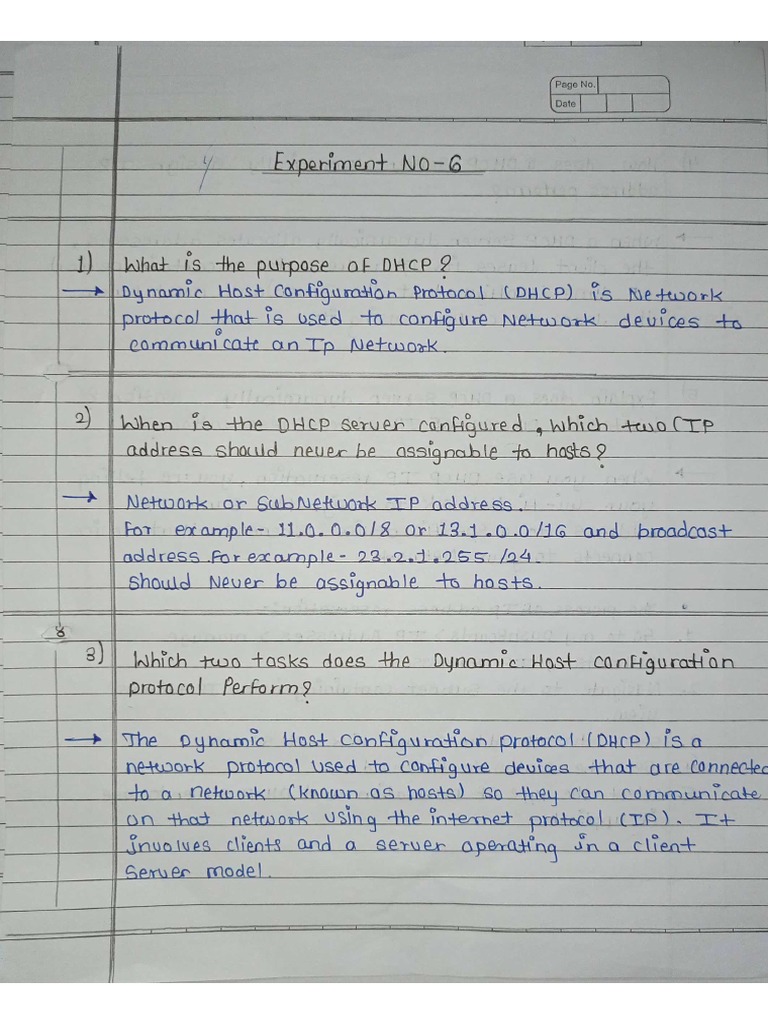 Page No.
Date
Experiment NO-6
1) What is the purpose of DHCP?
→ Dynamic Host Configuration Protocol (DHCP) is Network
protocol that is used to configure Network devices to
communicate an Ip Network.
2) When is the DHCP server configured, which two (IP
address should never be assignable to hosts?
→ Network or SubNetwork IP address.
For example- 11.0.0.0/8 or 13.1.0.0/16 and broadcast
address.for example- 23.2.1.255 /24.
should Never be assignable to hosts.
8
3) Which two tasks does the Dynamic Host configuration
protocol Perform?
→ The Dynamic Host configuration protocol (DHCP) is a
network protocol used to configure devices that are connected
to a network (known as hosts) so they can communicate
on that network using the internet protocol (IP). It
involves clients and a server operating in a client
server model.